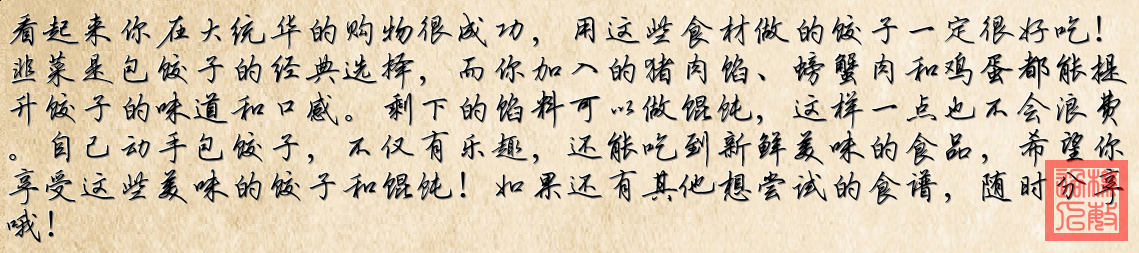 看起来你在大统华的购物很成功，用这些食材做的饺子一定很好吃！
韭菜是包饺子的经典选择，而你加入的猪肉馅、螃蟹肉和鸡蛋都能提
升饺子的味道和口感。剩下的馅料可以做馄饨，这样一点也不会浪费
。自己动手包饺子，不仅有乐趣，还能吃到新鲜美味的食品，希望你
享受这些美味的饺子和馄饨！如果还有其他想尝试的食谱，随时分享
哦！